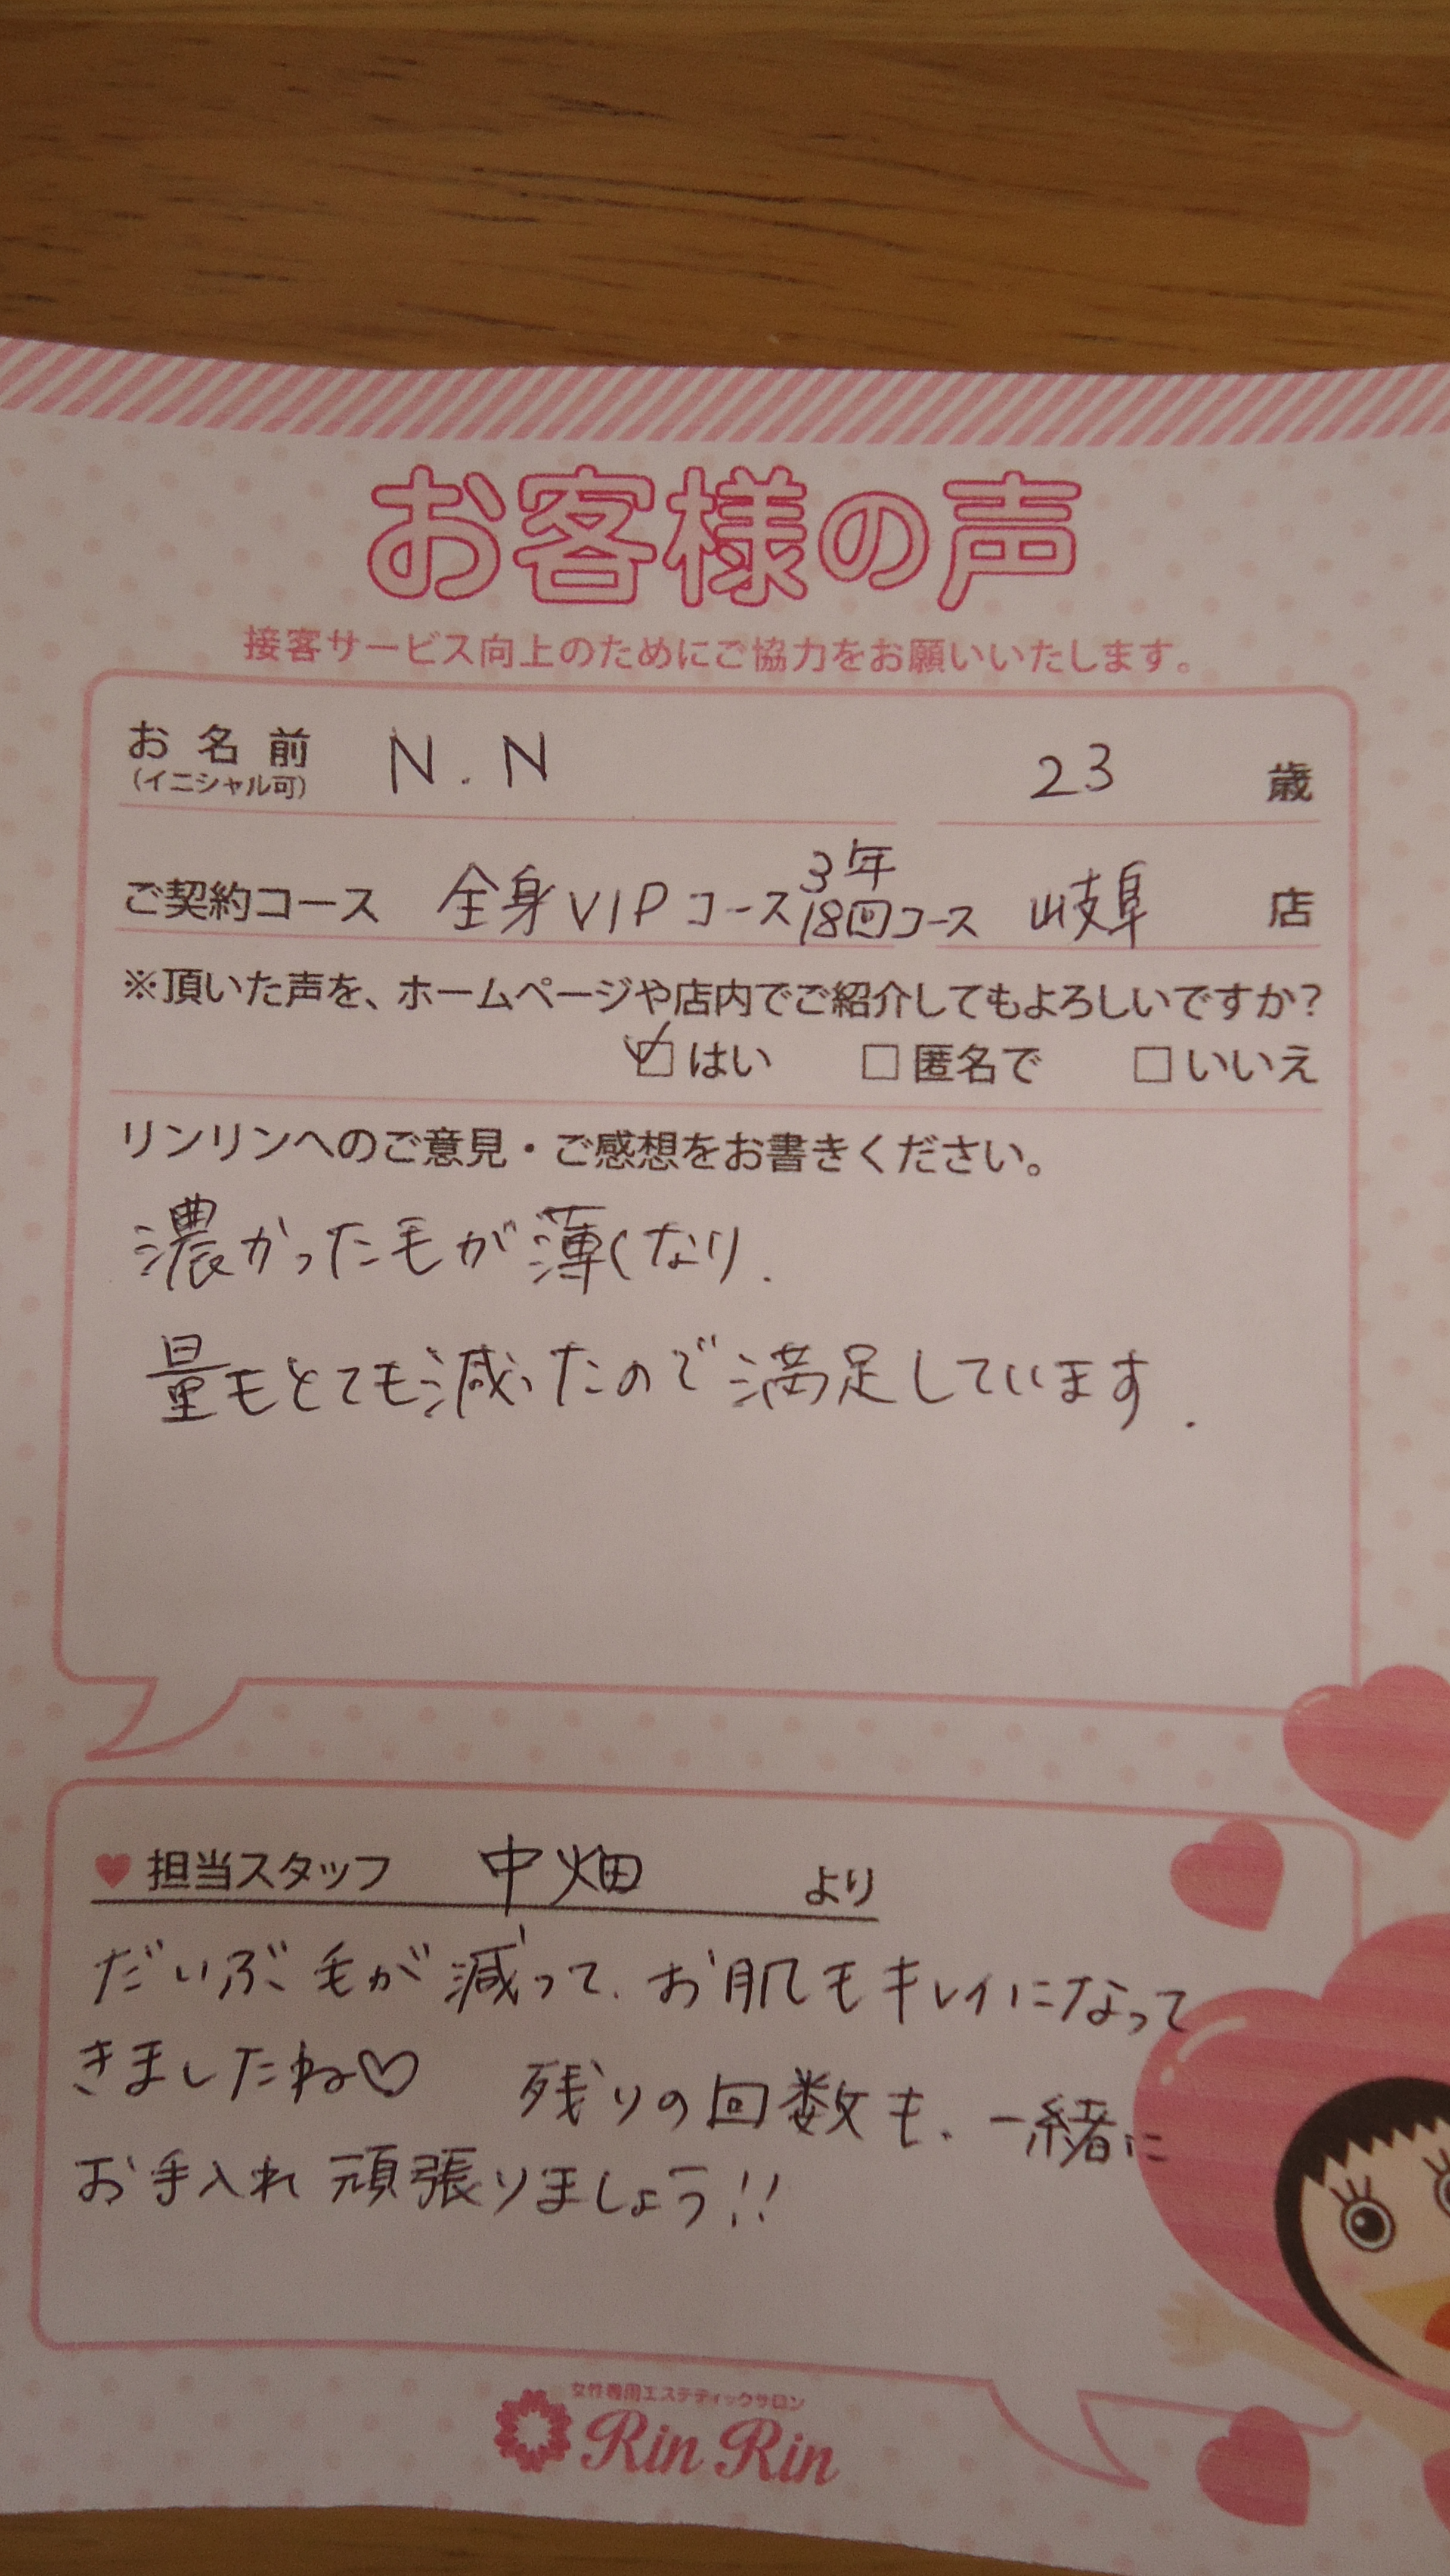 お客様の声
接客サービス向上のためにご協力をお願いいたします。
お名前 N.N 23 歳
(イニシャル可)
ご契約コース 全身VIPコース 3年 18回コース 岐阜 店
※頂いた声を、ホームページや店内でご紹介してもよろしいですか?
☑はい □匿名で □いいえ
リンリンへのご意見・ご感想をお書きください。
濃かった毛が薄くなり.
量もとても減ったので満足しています.
♥担当スタッフ 中畑 より
だいぶ毛が減って、お肌もキレイになって
きましたね♡ 残りの回数も、一緒に
お手入れ頑張りましょう!!
女性専用エステティックサロン
Rin Rin